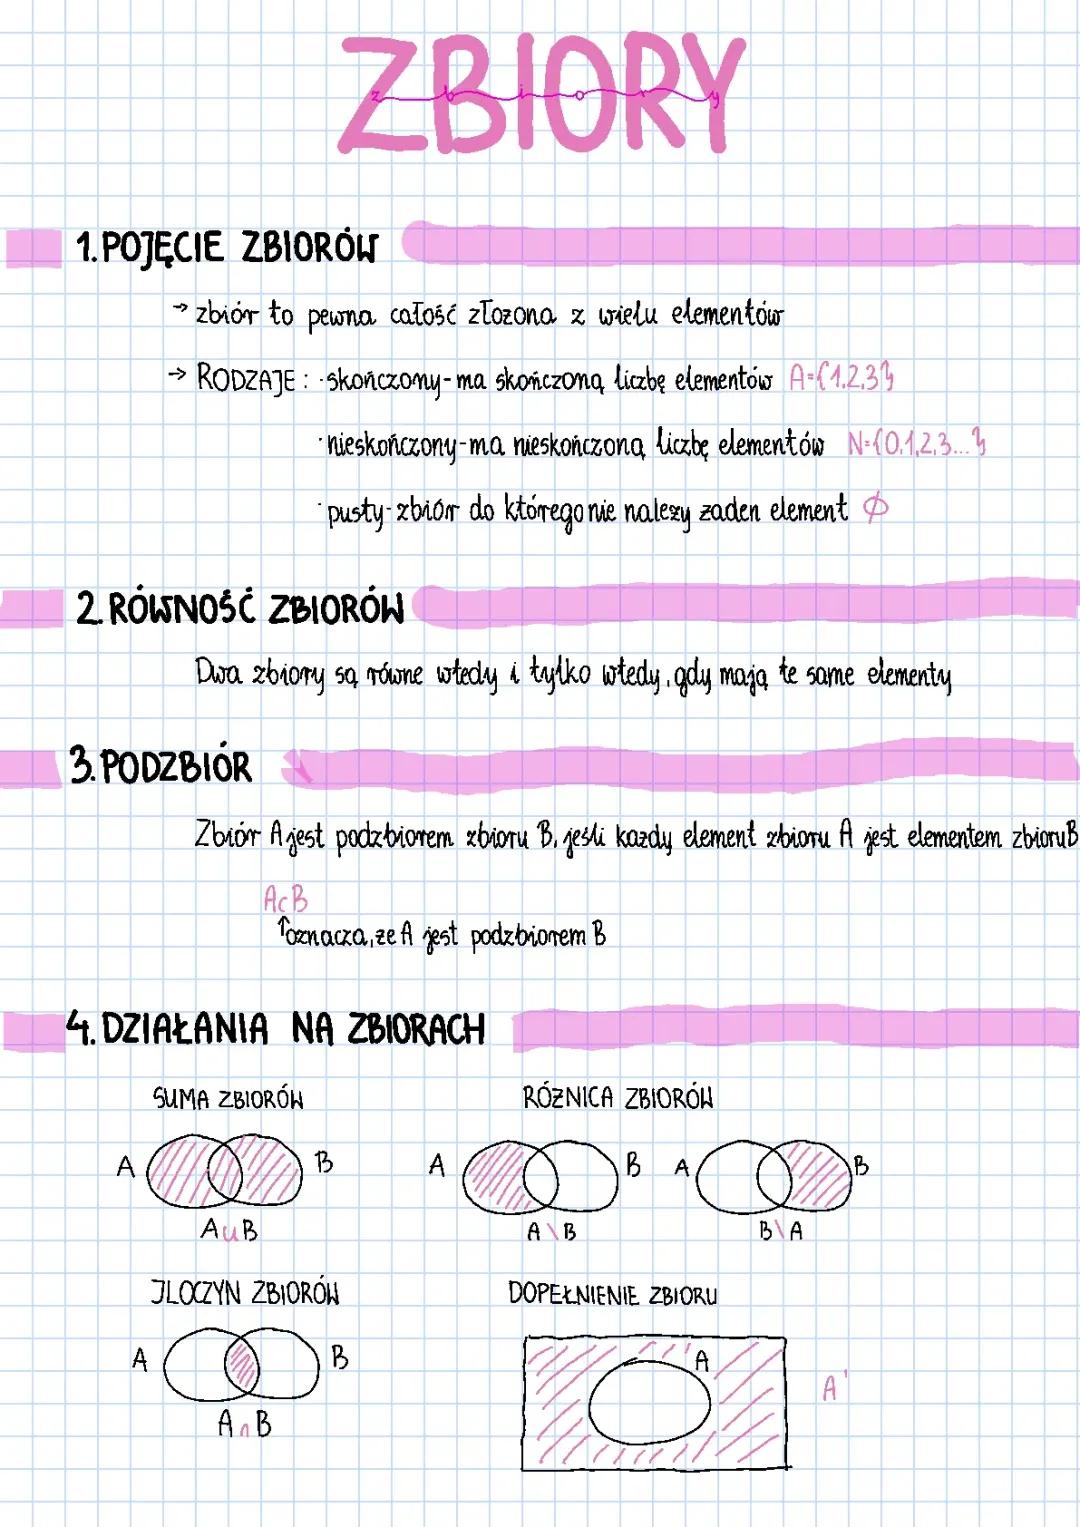 ZBIORY
zbiory
1. POJĘCIE ZBIORÓW
→ zbiór to pewna całość złożona z wielu elementów
→ RODZAJE: ·skończony-ma skończoną liczbę elementów A={1,2,3}
·nieskończony-ma nieskończoną liczbę elementów N={0,1,2,3...}
·pusty-zbiór do którego nie należy żaden element ∅
2. RÓWNOŚĆ ZBIORÓW
Dwa zbiory są równe wtedy i tylko wtedy, gdy mają te same elementy
3. PODZBIÓR
Zbiór A jest podzbiorem zbioru B, jeśli każdy element zbioru A jest elementem zbioru B
A⊂B
↑oznacza, że A jest podzbiorem B
4. DZIAŁANIA NA ZBIORACH
SUMA ZBIORÓW RÓŻNICA ZBIORÓW
A B A B A B
A∪B A\B B\A
ILOCZYN ZBIORÓW DOPEŁNIENIE ZBIORU
A B A A'
A∩B